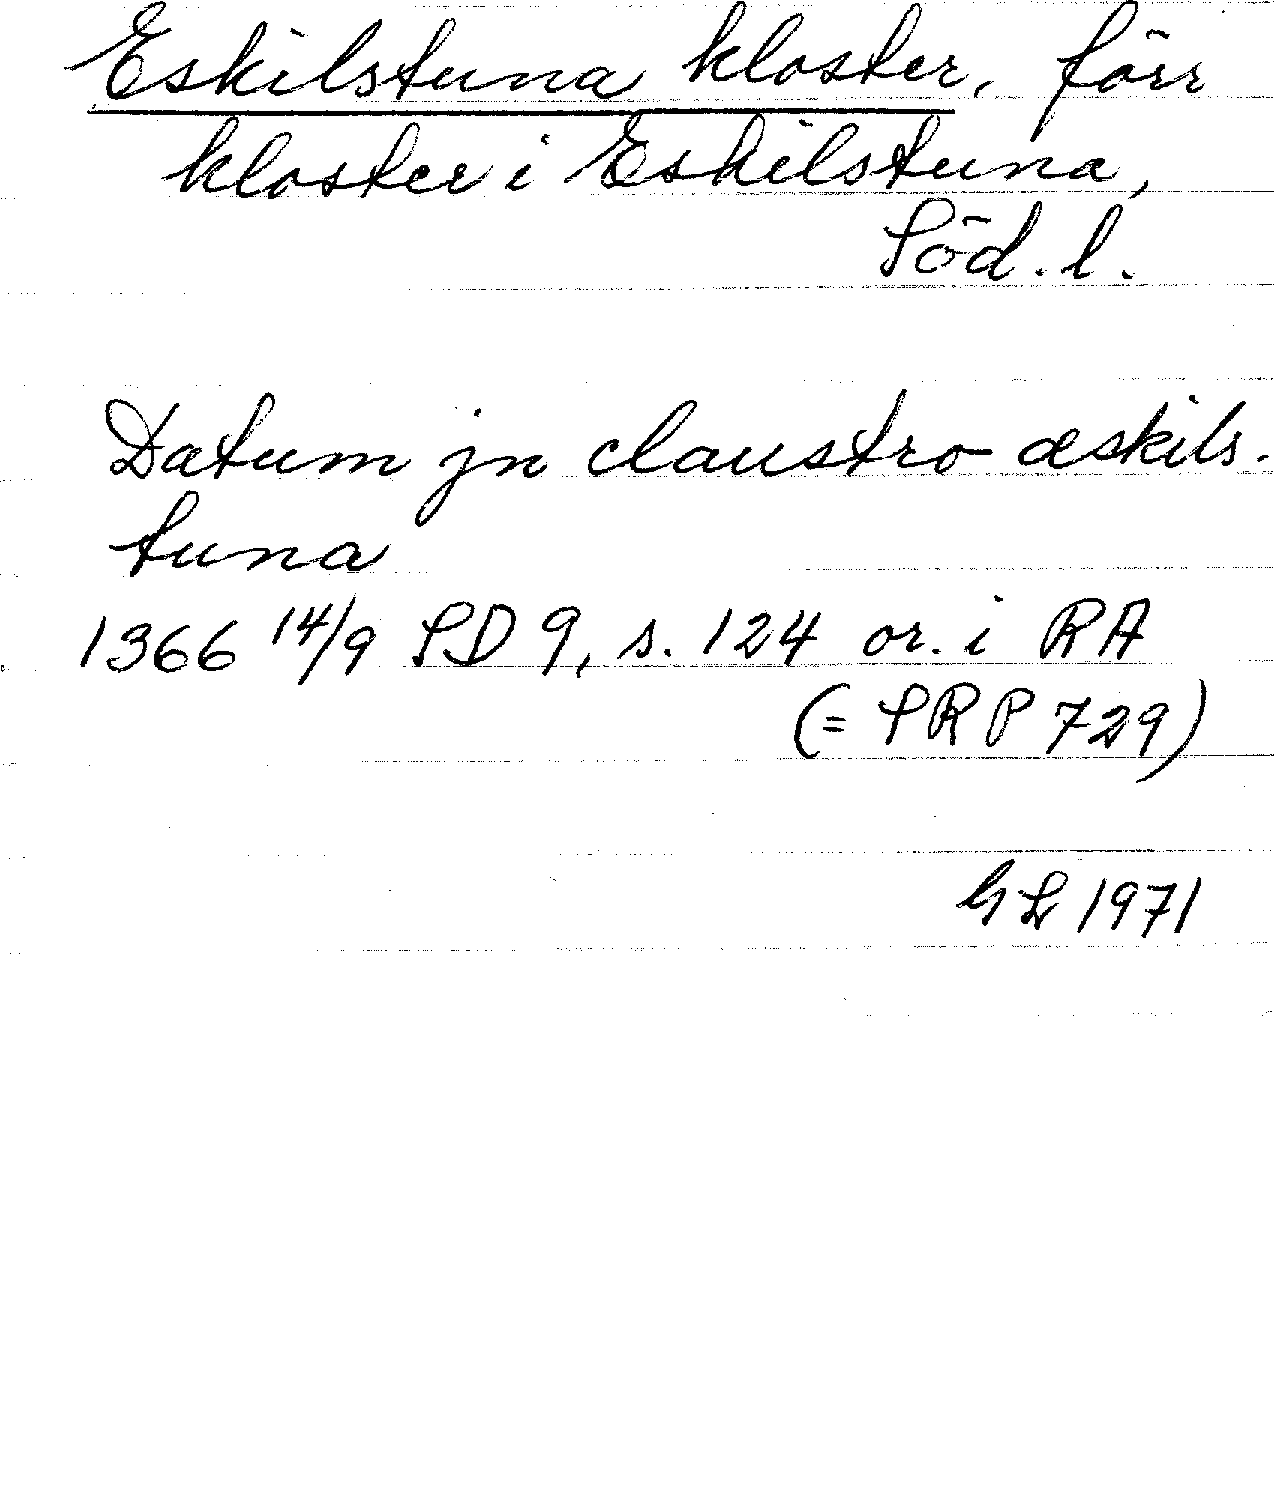 Eskilstuna kloster, förr
kloster i Eskilstuna,
Söd. l.
Datum jn claustro æskils-
tuna
1366 14/9 SD 9, s. 124 or. i RA
(= SRP 729)
GL 1971